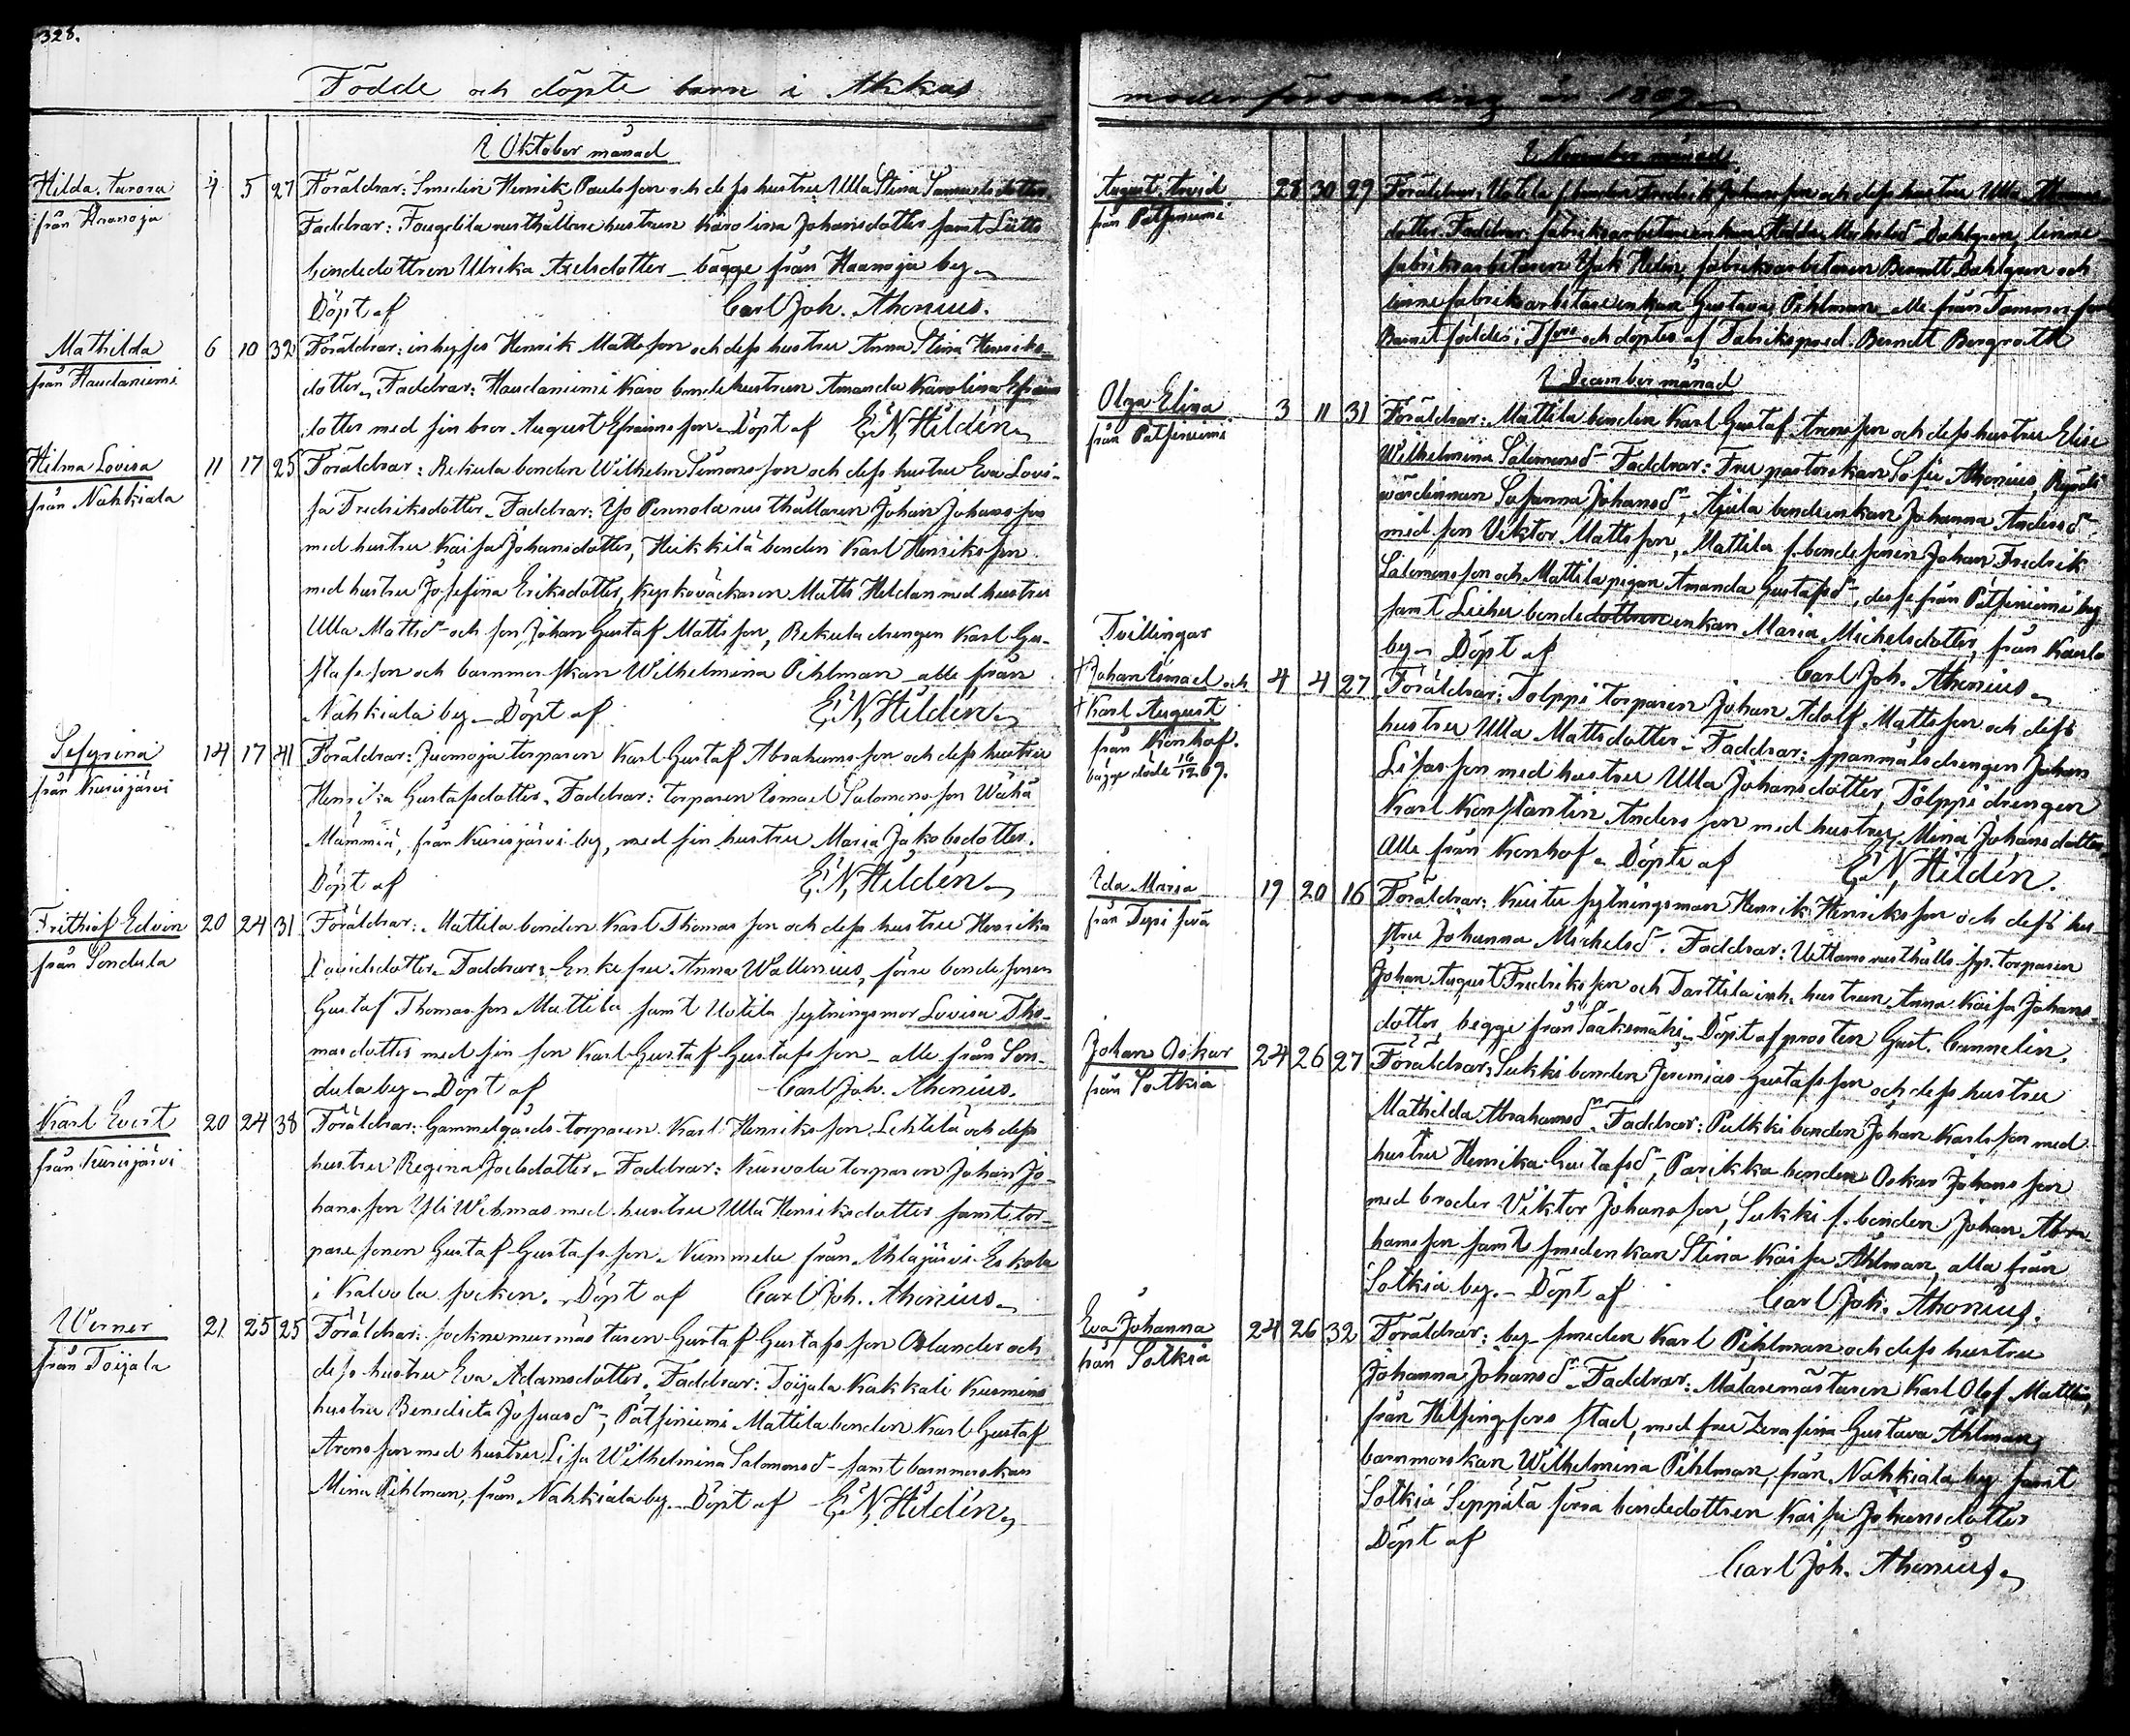 328.
Födde och döpte barn i Akkas
I Oktober månad
Hilda Aurora
från Haanoja
4 5 27 Föräldrar: Smeden Henrik Paulsson och dess hustru Ulla Stina Samuelsdotter.
Faddrar: rusthållarehustrun Karolina Johansdotter samt
bondedottren Ulrika Axelsdotter – bägge från Haanoja by.
Döpt af Carl Joh. Ahonius.
Mathilda
från Haudaniemi
6 10 32 Föräldrar: inhyses Henrik Mattsson och dess hustru Anna Stina Henriks-
dotter. Faddrar: Haudaniemi Karo bondehustrun Amanda Karolina Efraims
dotter med sin bror August Efraimsson. Döpt af E. N. Hildén
Hilma Lovisa
från Nahkiala
11 17 25 Föräldrar: Rekula bonden Wilhelm Simonsson och dess hustru Eva Lovi-
sa Fredriksdotter. Faddrar: Iso Pennola rusthållaren Johan Johansson
med hustru Kaisa Johansdotter, Heikkilä bonden Karl Henriksson
med hustru Josefina Eriksdotter, kyrkoväckaren Matts Heldan med hustru
Ulla Mattsd:r och son Johan Gustaf Mattsson, Rekula drengen Karl Gu-
stafsson och barnmorskan Wilhelmina Pihlman – alle från
Nahkiala by – Döpt af E. N. Hildén
Sefyrina
från Kurisjärvi
14 17 41 Föräldrar: Juomoja torparen Karl Gustaf Abrahamsson och dess hustru
Henrika Gustafsdotter. Faddrar: torparen Ismael Salomonsson Wähä
Mämmiä, från Kurisjärvi by, med sin hustru Maria Jakobsdotter.
Döpt af E. N. Hildén
Frithiof Edvin
från Sondula
20 24 31 Föräldrar: Mattila bonden Karl Thomasson och dess hustru Henrika
Davidsdotter. Faddrar: Enkefru Anna Wallenius, förre bondesonen
Gustaf Thomasson Mattila samt Uotila sytningsmor Lovisa Tho-
masdotter med sin son Karl Gustaf Gustafsson – alle från Son-
dula by – Döpt af Carl Joh. Ahonius.
Karl Evert
från Kurisjärvi
20 24 38 Föräldrar: Gammelgårds torparen Karl Henriksson Lehtilä och dess
hustru Regina Joelsdotter. Faddrar: torparen Johan Jo-
hansson Yli Wehmas med hustru Ulla Henriksdotter samt tor-
paresonen Gustaf Gustafsson Nummela från Ahlajärvi Eskola
i Kalvola socken. Döpt af Carl Joh. Ahonius
Werner
från Toijala
21 25 25 Föräldrar: socknemurmästaren Gustaf Gustafsson Oslander och
dess hustru Eva Adamsdotter. Faddrar: Toijala Kakkali
hustru Benedicta Josuasd:r, Pätsiniemi Mattila bonden Karl Gustaf
Aronsson med hustru Lisa Wilhelmina Salomonsd:r samt barnmorskan
Mina Pihlman, från Nahkiala by – Döpt af E. N. Hildén
moderförsamling år 1869
I November månad
August Arvid
från Pätsiniemi
28 30 29 Föräldrar: Uotila f. bonden Fredrik Johansson och dess hustru Ulla
dotter. Faddrar: fabriksarbetareenkan Hedda Dahlgren, linne-
fabriksarbetaren Isak Helin, fabriksarbetaren Berndt Dahlgren och
linnefabriksarbetareenkan Gustava Pihlman, alle från Tammerfors
Barnet föddes i T:fors och döptes af Fabrikspred. Berndt Bergroth
I December månad
Olga Elina
från Pätsiniemi
3 11 31 Föräldrar: Mattila bonden Karl Gustaf Aronsson och dess hustru Elise
Wilhelmina Salomonsd:r Faddrar: Fru pastorskan Sofie Ahonius,
värdinnan Susanna Johansd:r, Ajula bondeenkan Johanna Andersd:r
med son Viktor Mattsson, Mattila f. bondesonen Johan Fredrik
Salomonsson och Mattila pigan Amanda Gustafsd:r, desse från Pätsiniemi by
samt bondedottren enkan Maria Michelsdotter, från
by – Döpt af Carl Joh. Ahonius
Tvillingar
† Johan Ismael och
† Karl August
från Konhof.
bägge döde 16/12 69.
4 4 27 Föräldrar: Tolppi torparen Johan Adolf Mattsson och dess
hustru Ulla Mattsdotter. Faddrar: spanmålsdrengen Johan
Lisasson med hustru Ulla Johansdotter, Tolppi drengen
Karl Konstantin Andersson med hustru Mina Johansdotter,
Alle från Konhof. Döpte af E. N. Hildén.
Ida Maria
från
19 20 16 Föräldrar: sytningsman Henrik Henriksson och dess hu-
stru Johanna Michelsd:r. Faddrar: Uittamo rusthålls syt. torparen
Johan August Fredriksson och Tarttila inh. hustrun Anna Kaisa Johans-
dotter, begge från Sääksmäki – Döpt af prosten Gust. Cannelin.
Johan Oskar
från Sotkia
24 26 27 Föräldrar: Sukki bonden Jeremias Gustafsson och dess hustru
Mathilda Abrahamsd:r. Faddrar: Pulkki bonden Johan Karlsson med
hustru Henrika Gustafsd:r, Parikka bonden Oskar Johansson
med broder Viktor Johansson, Sukki f. bonden Johan Abra
hamsson samt smedenkan Stina Kaisa Åhlman, alla från
Sotkia by. – Döpt af Carl Joh. Ahonius.
Eva Johanna
från Sotkia
24 26 32 Föräldrar: by smeden Karl Pihlman och dess hustru
Johanna Johansd:r. Faddrar: Målaremästaren Karl Olof
från Helsingfors stad, med fru Zerafina Gustava Åhlman,
barnmorskan Wilhelmina Pihlman, från Nahkiala by samt
Sotkia Seppälä förra bondedottren Kaisa Johansdotter
Döpt af
Carl Joh. Ahonius